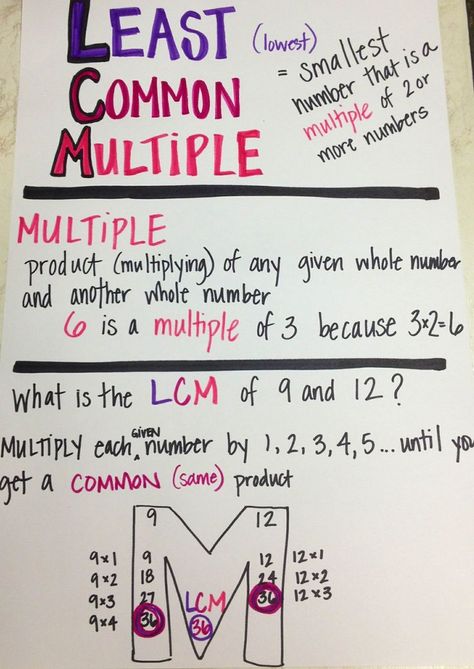 LEAST (lowest)
COMMON
MULTIPLE
= smallest
number that is a
multiple of 2 or
more numbers
MULTIPLE
product (multiplying) of any given whole number
and another whole number
6 is a multiple of 3 because 3×2=6
What is the LCM of 9 and 12?
MULTIPLY each GIVEN number by 1, 2, 3, 4, 5... until you
get a COMMON (same) product
9 12
9×1 9 12 12×1
9×2 18 24 12×2
9×3 27 LCM 36 12×3
9×4 36 36